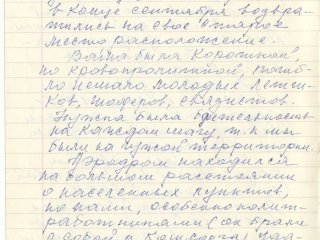 в конце сентября возвра-
тились на своё старое
место расположение.
Война была короткой,
но кровопролитной, погиб-
ло немало молодых лётчи-
ков, шоферов, связистов.
Нужна была бдительность
на каждом шагу, т.к мы
были на чужой территории.
Аэродром находился
на большом расстоянии
о населенных пунктов,
но нами, особенно полит-
работниками (он брал
с собой и комсорга)